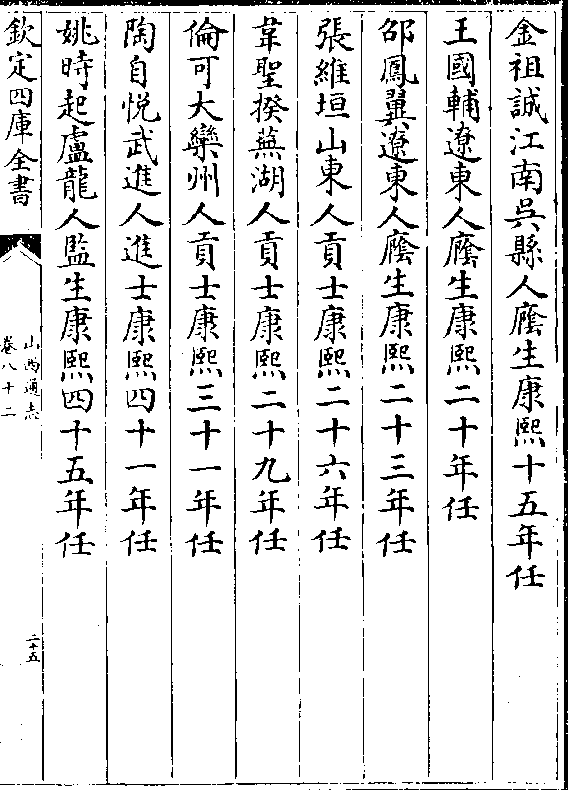 金祖誠江南吳縣人廕生康熙十五年任
王國輔遼東人廕生康熙二十年任
邵鳳翼遼東人廕生康熙二十三年任
張維垣山東人貢士康熙二十六年任
韋聖揆蕪湖人貢士康熙二十九年任
倫可大欒州人貢士康熙三十一年任
陶自悅武進人進士康熙四十一年任
姚時起盧龍人監生康熙四十五年任
欽定四庫全書
山西通志
卷八十二
二十五